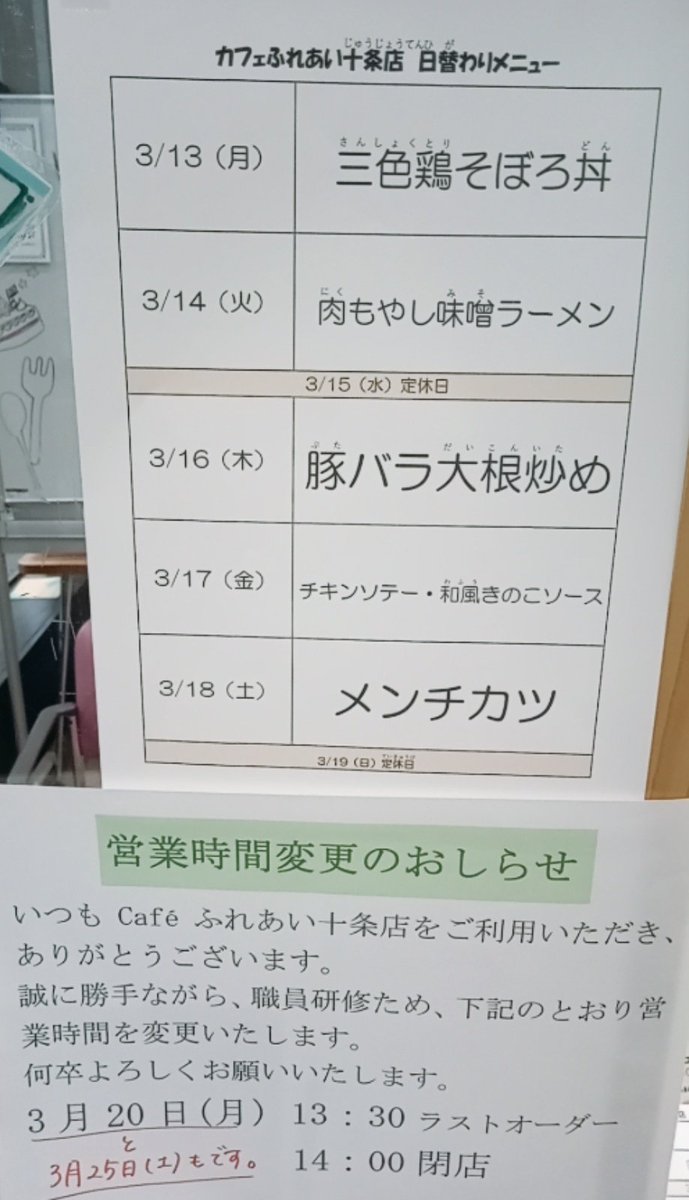 カフェふれあい十条店 日替わりメニュー
3/13（月） 三色鶏そぼろ丼
3/14（火） 肉もやし味噌ラーメン
3/15（水）定休日
3/16（木） 豚バラ大根炒め
3/17（金） チキンソテー・和風きのこソース
3/18（土） メンチカツ
3/19（日）定休日
営業時間変更のおしらせ
いつも Café ふれあい十条店をご利用いただき、
ありがとうございます。
誠に勝手ながら、職員研修ため、下記のとおり営
業時間を変更いたします。
何卒よろしくお願いいたします。
3 月 20 日（月） 13：30 ラストオーダー
と
3月25日(土)もです。 14：00 閉店